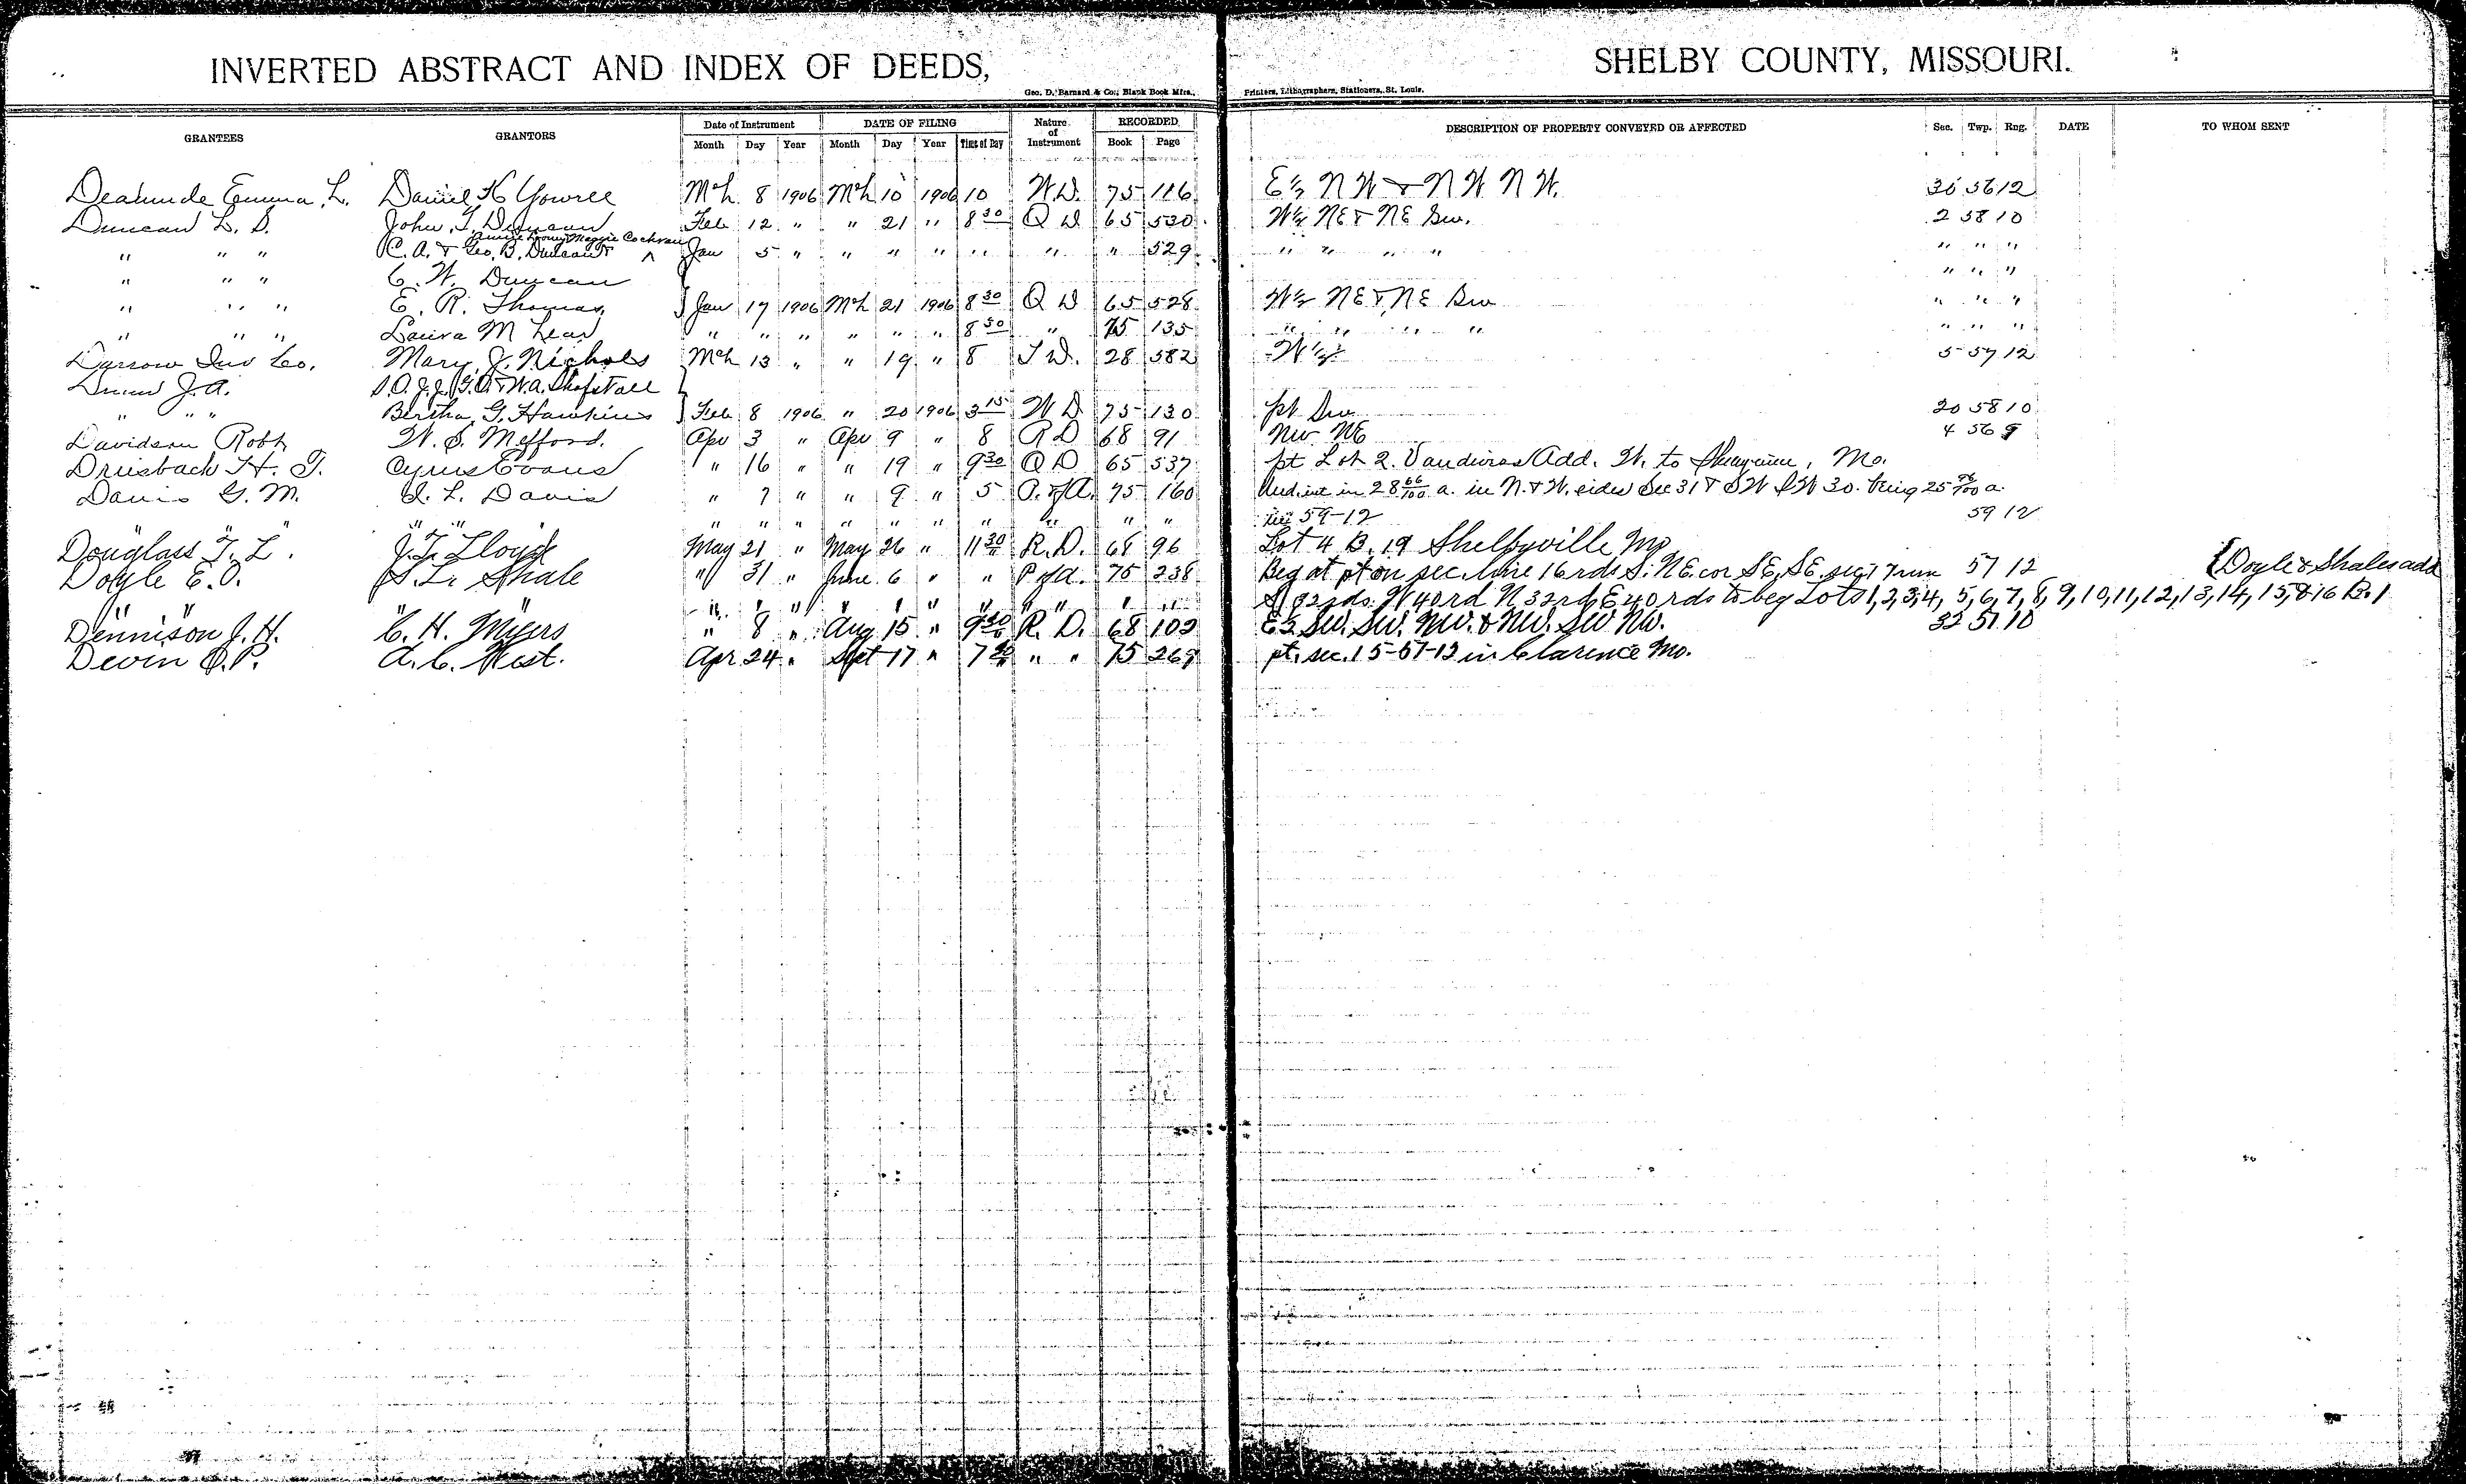 INVERTED ABSTRACT AND INDEX OF DEEDS, SHELBY COUNTY, MISSOURI.
Geo. D. Barnard & Co., Blank Book Mfrs., Printers, Lithographers, Stationers, St. Louis.
GRANTEES GRANTORS Date of Instrument DATE OF FILING Nature of Instrument RECORDED DESCRIPTION OF PROPERTY CONVEYED OR AFFECTED Sec. Twp. Rng. DATE TO WHOM SENT
Month Day Year Month Day Year Time of Day Book Page
Emma L. Daniel H Yowell Mch 8 1906 Mch 10 1906 10 W.D. 75 116 E½ NW & NW NW. 30 56 12
Duncan L. D. John T. Duncan Feb 12 " " 21 " 8 30 Q D 65 530 W½ NE & NE Sw. 2 58 10
Maggie Cochran
" " " C. A. & Geo. B. Duncan & ^ Jan 5 " " " " " " " 529 " " " " " " "
" " " C. W. Duncan " " "
" " " E. R. Thomas } Jan 17 1906 Mch 21 1906 8 30 Q D 65 528 W½ NE & NE Sw " " "
" " " Laura M Lear " " " " " " 8 50 " 75 135 " " " " " " "
Darrow Inv Co. Mary J. Nichols Mch 13 " " 19 " 8 T D. 28 582 W½ 5 57 12
J. A. S. O. J. J. G. O. & W. A. Shofstall }
" " " Bertha G. Hawkins } Feb 8 1906 " 20 1906 3 15 W D 75 130 pt Sw 20 58 10
Davidson Robt W. S. Mefford. Apr 3 " Apr 9 " 8 R D 68 91 Nw NE 4 56 9
Driesbach H. T. Cyrus Evans " 16 " " 19 " 9 30 Q D 65 537 pt Lot 2. Vandivers Add. W. to Mo.
Davis G. M. L. Davis " 7 " " 9 " 5 75 160 Und. int in 28 66/100 a. in N. & W. sides Sec 31 & SW SW 30. being 25 /100 a.
" " " " " " " " " " " " 59-12 59 12
Douglass T. L. J. T. Lloyd May 21 " May 26 " 11 30 R. D. 68 96 Lot 4 B. 19 Shelbyville Mo
Doyle E. O. S. L. Shale " 31 " June 6 " " P of a. 75 238 Beg at pt on sec. line 16 rds S. NE. cor SE. SE. sec. 17 run 57 12 { Doyle & Shales add
" " " " " " " " " " " " " " S 32 rds W 40 rd N 32 rd E 40 rds to beg Lots 1, 2, 3, 4, 5, 6, 7, 8, 9, 10, 11, 12, 13, 14, 15, & 16 B. 1
Dennison J. H. C. H. Myers " 8 " Aug 15 " 9 30 R. D. 68 102 E½ Sw. Sw. Nw. & Nw. Sw. Nw. 32 57 10
Devin O. P. A. C. West. Apr 24 " Sept 17 " 7 30 " " 75 269 pt. sec. 15-57-12 in Clarence Mo.